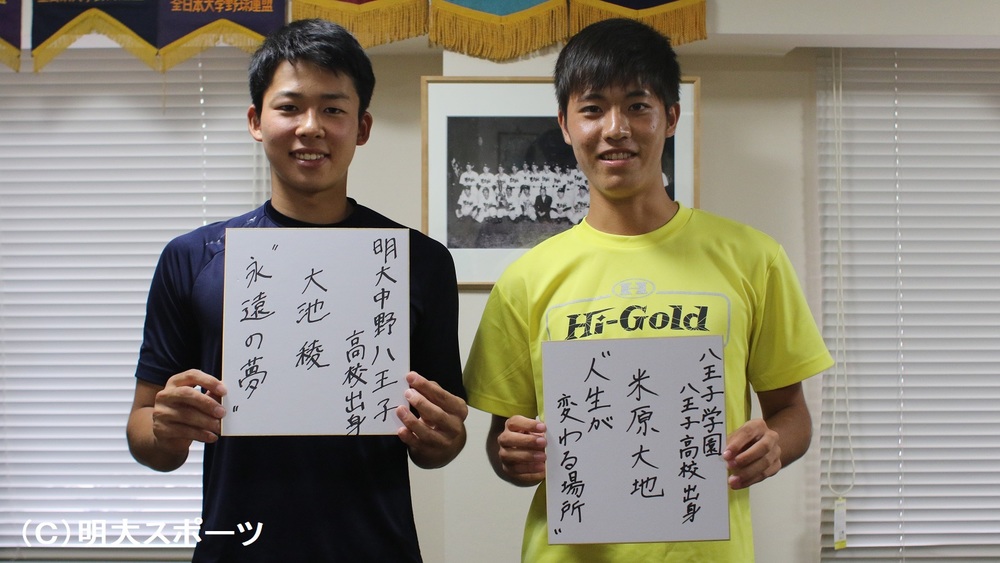 全日本大学野球連盟
明大中野八王子
高校出身
大池 稜
"永遠の夢"
Hi-Gold
八王子学園
八王子高校出身
米原大地
"人生が
変わる場所"
(C)明大スポーツ